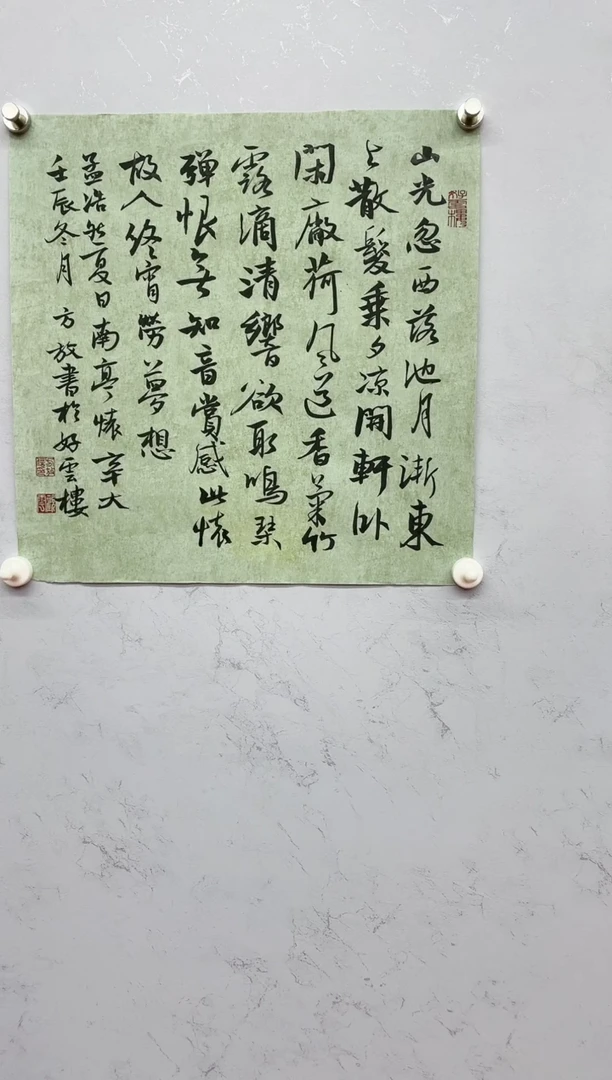 山光忽西落池月漸東
上散髮乘夕涼開軒卧
閑廠荷风送香氣竹
露滴清響欲取鳴琴
彈恨無知音賞感此懷
故人終宵勞夢想
孟浩然夏日南亭懷辛大
壬辰冬月 方放書於好雲樓